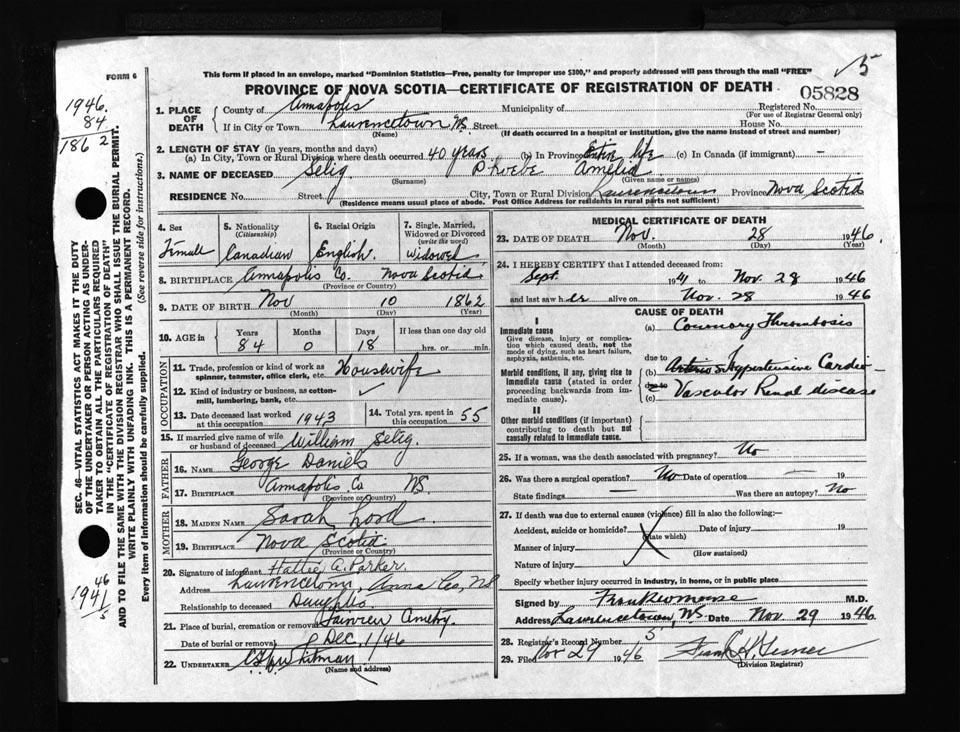 FORM 6
This form if placed in an envelope, marked "Dominion Statistics—Free, penalty for improper use $300," and property addressed will pass through the mail "FREE"
√5
PROVINCE OF NOVA SCOTIA—CERTIFICATE OF REGISTRATION OF DEATH 05828
1946.
84
1862
1. PLACE OF DEATH
County of Annapolis Municipality of Registered No.
(For use of Registrar General only)
If in City or Town Lawrencetown NS Street House No.
(Name) (If death occurred in a hospital or institution, give the name instead of street and number)
2. LENGTH OF STAY (in years, months and days)
(a) In City, Town or Rural Division where death occurred 40 years (b) In Province Entire life (c) In Canada (if immigrant) —
3. NAME OF DECEASED Selig Phoebe Amelia
(Surname) (Given name or names)
RESIDENCE No. Street City, Town or Rural Division Lawrencetown Province Nova Scotia
(Residence means usual place of abode. Post Office Address for residents in rural parts not sufficient)
4. Sex 5. Nationality (Citizenship) 6. Racial Origin 7. Single, Married, Widowed or Divorced (write the word)
Female Canadian English. Widowed
8. BIRTHPLACE Annapolis Co. Nova Scotia
(Province or Country)
9. DATE OF BIRTH Nov 10 1862
(Month) (Day) (Year)
10. AGE in Years Months Days If less than one day old
84 0 18 hrs. or min.
OCCUPATION
11. Trade, profession or kind of work as spinner, teamster, office clerk, etc. Housewife
12. Kind of industry or business, as cotton-mill, lumbering, bank, etc. ✓
13. Date deceased last worked at this occupation 1943 14. Total yrs. spent in this occupation 55
15. If married give name of wife or husband of deceased William Selig.
FATHER
16. NAME George Daniels
17. BIRTHPLACE Annapolis Co NS
(Province or Country)
MOTHER
18. MAIDEN NAME Sarah Lord
19. BIRTHPLACE Nova Scotia
(Province or Country)
20. Signature of informant Hattie A. Parker.
Address Lawrencetown, Anna Co, NS
Relationship to deceased Daughter
21. Place of burial, cremation or removal Fairview Cmetry.
Date of burial or removal Dec, 1/46
22. UNDERTAKER Whitman
(Name and address)
MEDICAL CERTIFICATE OF DEATH
23. DATE OF DEATH Nov. 28 1946
(Month) (Day) (Year)
24. I HEREBY CERTIFY that I attended deceased from:
Sept. 1941 to Nov. 28 1946
and last saw her alive on Nov. 28 1946
CAUSE OF DEATH
I
Immediate cause
Give disease, injury or complication which caused death, not the mode of dying, such as heart failure, asphyxia, asthenia, etc.
(a) Coronary Thrombosis
due to
Morbid conditions, if any, giving rise to immediate cause (stated in order proceeding backwards from immediate cause).
(b) Hypertensive Cardio
due to
(c) Vascular Renal disease
II
Other morbid conditions (if important) contributing to death but not causally related to immediate cause.
25. If a woman, was the death associated with pregnancy? No
26. Was there a surgical operation? No Date of operation — 19
State findings — Was there an autopsy? No
27. If death was due to external causes (violence) fill in also the following:—
Accident, suicide or homicide? Date of injury 19
(State which)
Manner of injury
(How sustained)
Nature of injury
Specify whether injury occurred in industry, in home, or in public place
Signed by M.D.
Address Lawrencetown, NS. Date Nov 29 1946
28. Registrar's Record Number 5
29. Filed Nov 29 1946
(Division Registrar)
SEC. 46—VITAL STATISTICS ACT MAKES IT THE DUTY
OF THE UNDERTAKER OR PERSON ACTING AS UNDER-
TAKER TO OBTAIN ALL THE PARTICULARS REQUIRED
IN THE "CERTIFICATE OF REGISTRATION OF DEATH"
AND TO FILE THE SAME WITH THE DIVISION REGISTRAR WHO SHALL ISSUE THE BURIAL PERMIT.
WRITE PLAINLY WITH UNFADING INK. THIS IS A PERMANENT RECORD.
Every item of information should be carefully supplied. (See reverse side for instructions.)
46
1941
5